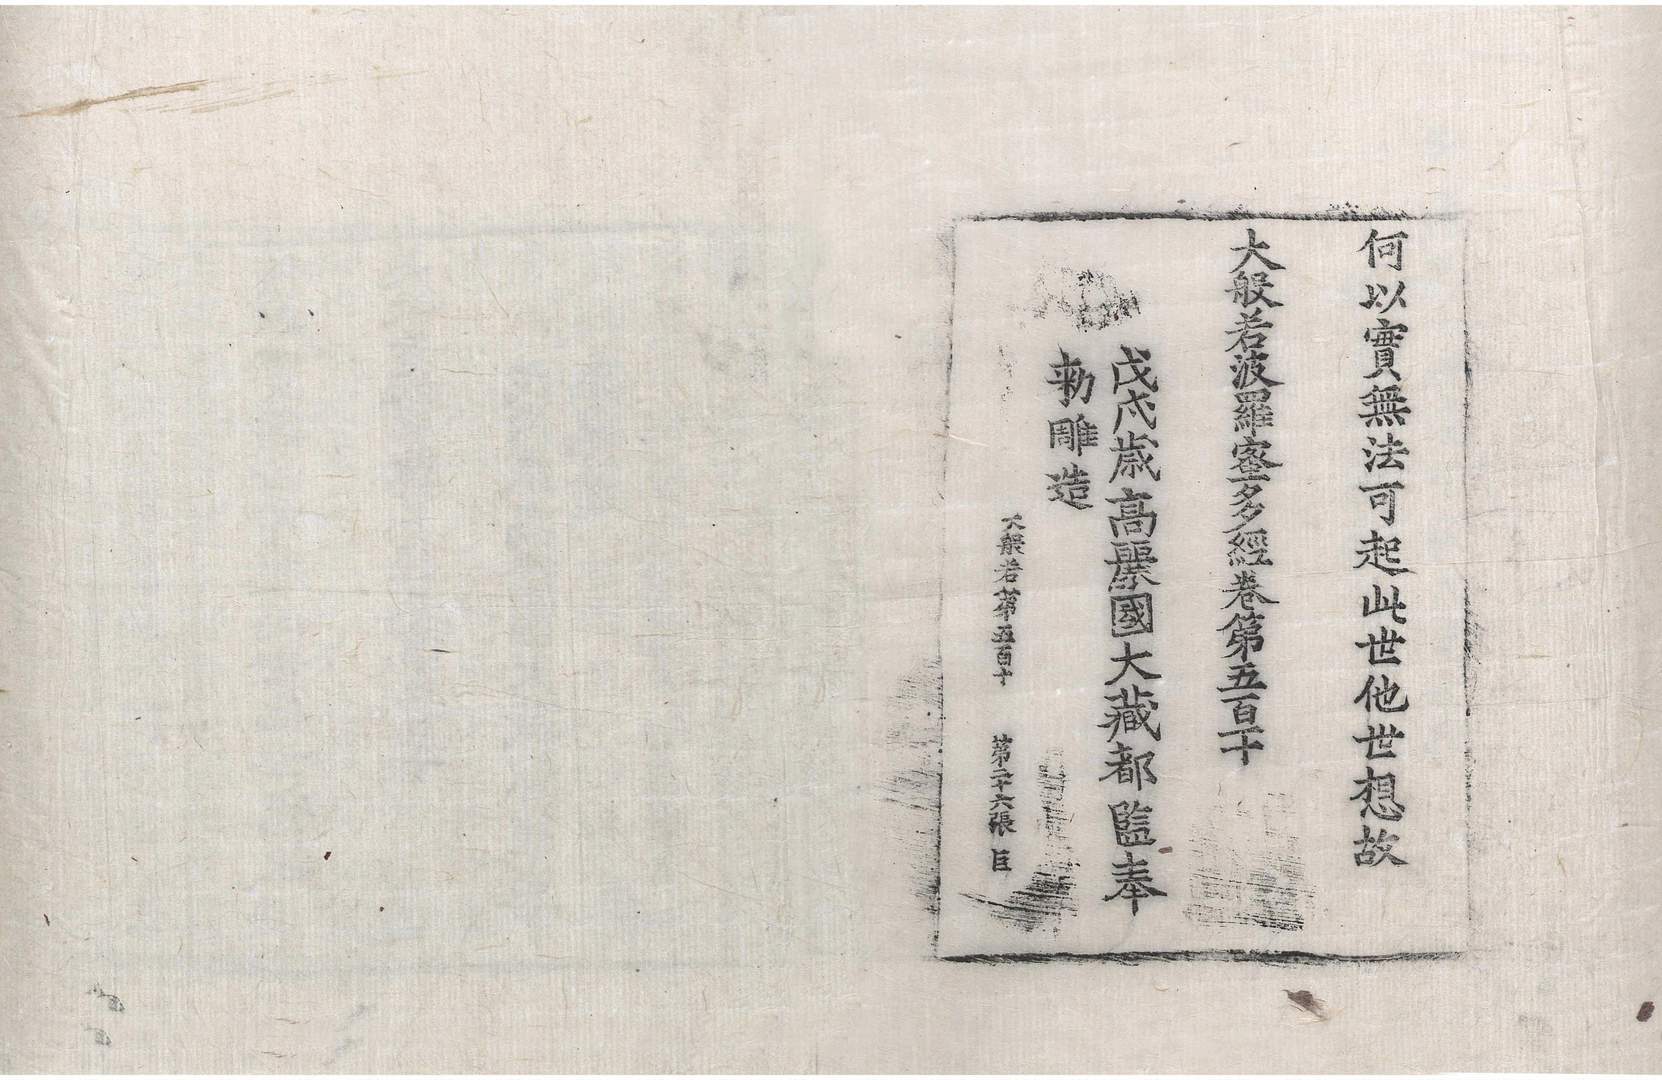 何以實無法可起此世他世想故
大般若波羅蜜多經卷第五百十
戊戌歲高麗國大藏都監奉
勅雕造
大般若第五百十 第二十六張 臣